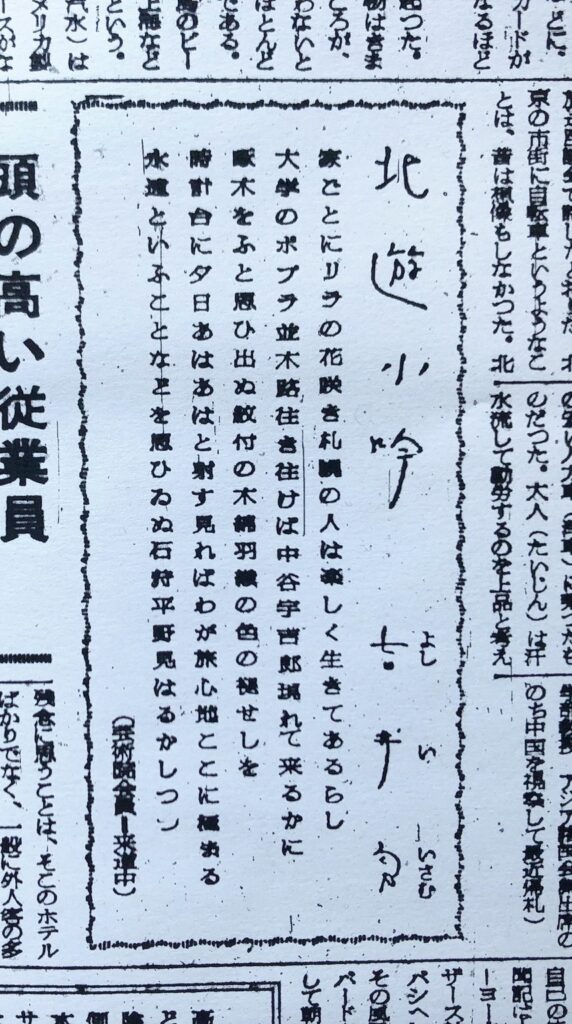 カードが
なるほど
起つた。
ころが、
わないと
ほとんど
である。
島のビー
上海など
という。
メリカ製
ースがな
京の市街に自転車というようなど
とは、昔は想像もしなかつた。北
のだつた。大人（たいじん）は汗
水流して勤労するのを上品と考え
のち中国を視察して最近帰札）
北遊小吟
吉井勇
よしいいさむ
家ごとにリラの花咲き札幌の人は楽しく生きてあるらし
大学のポプラ並木路往き往けば中谷宇吉郎現れて来るかに
啄木をふと思ひ出ぬ紋付の木綿羽織の色の褪せしを
時計台に夕日あはあはと射す見ればわが旅心地ここに極まる
永遠といふことなどを思ひゐぬ石狩平野見はるかしつつ
（芸術院会員ー来道中）
頭の高い従業員
残念に思うことは、そこのホテル
ばかりでなく、一般に外人客の多
自己の
ーヨー
ザース
その風
パード
して朝